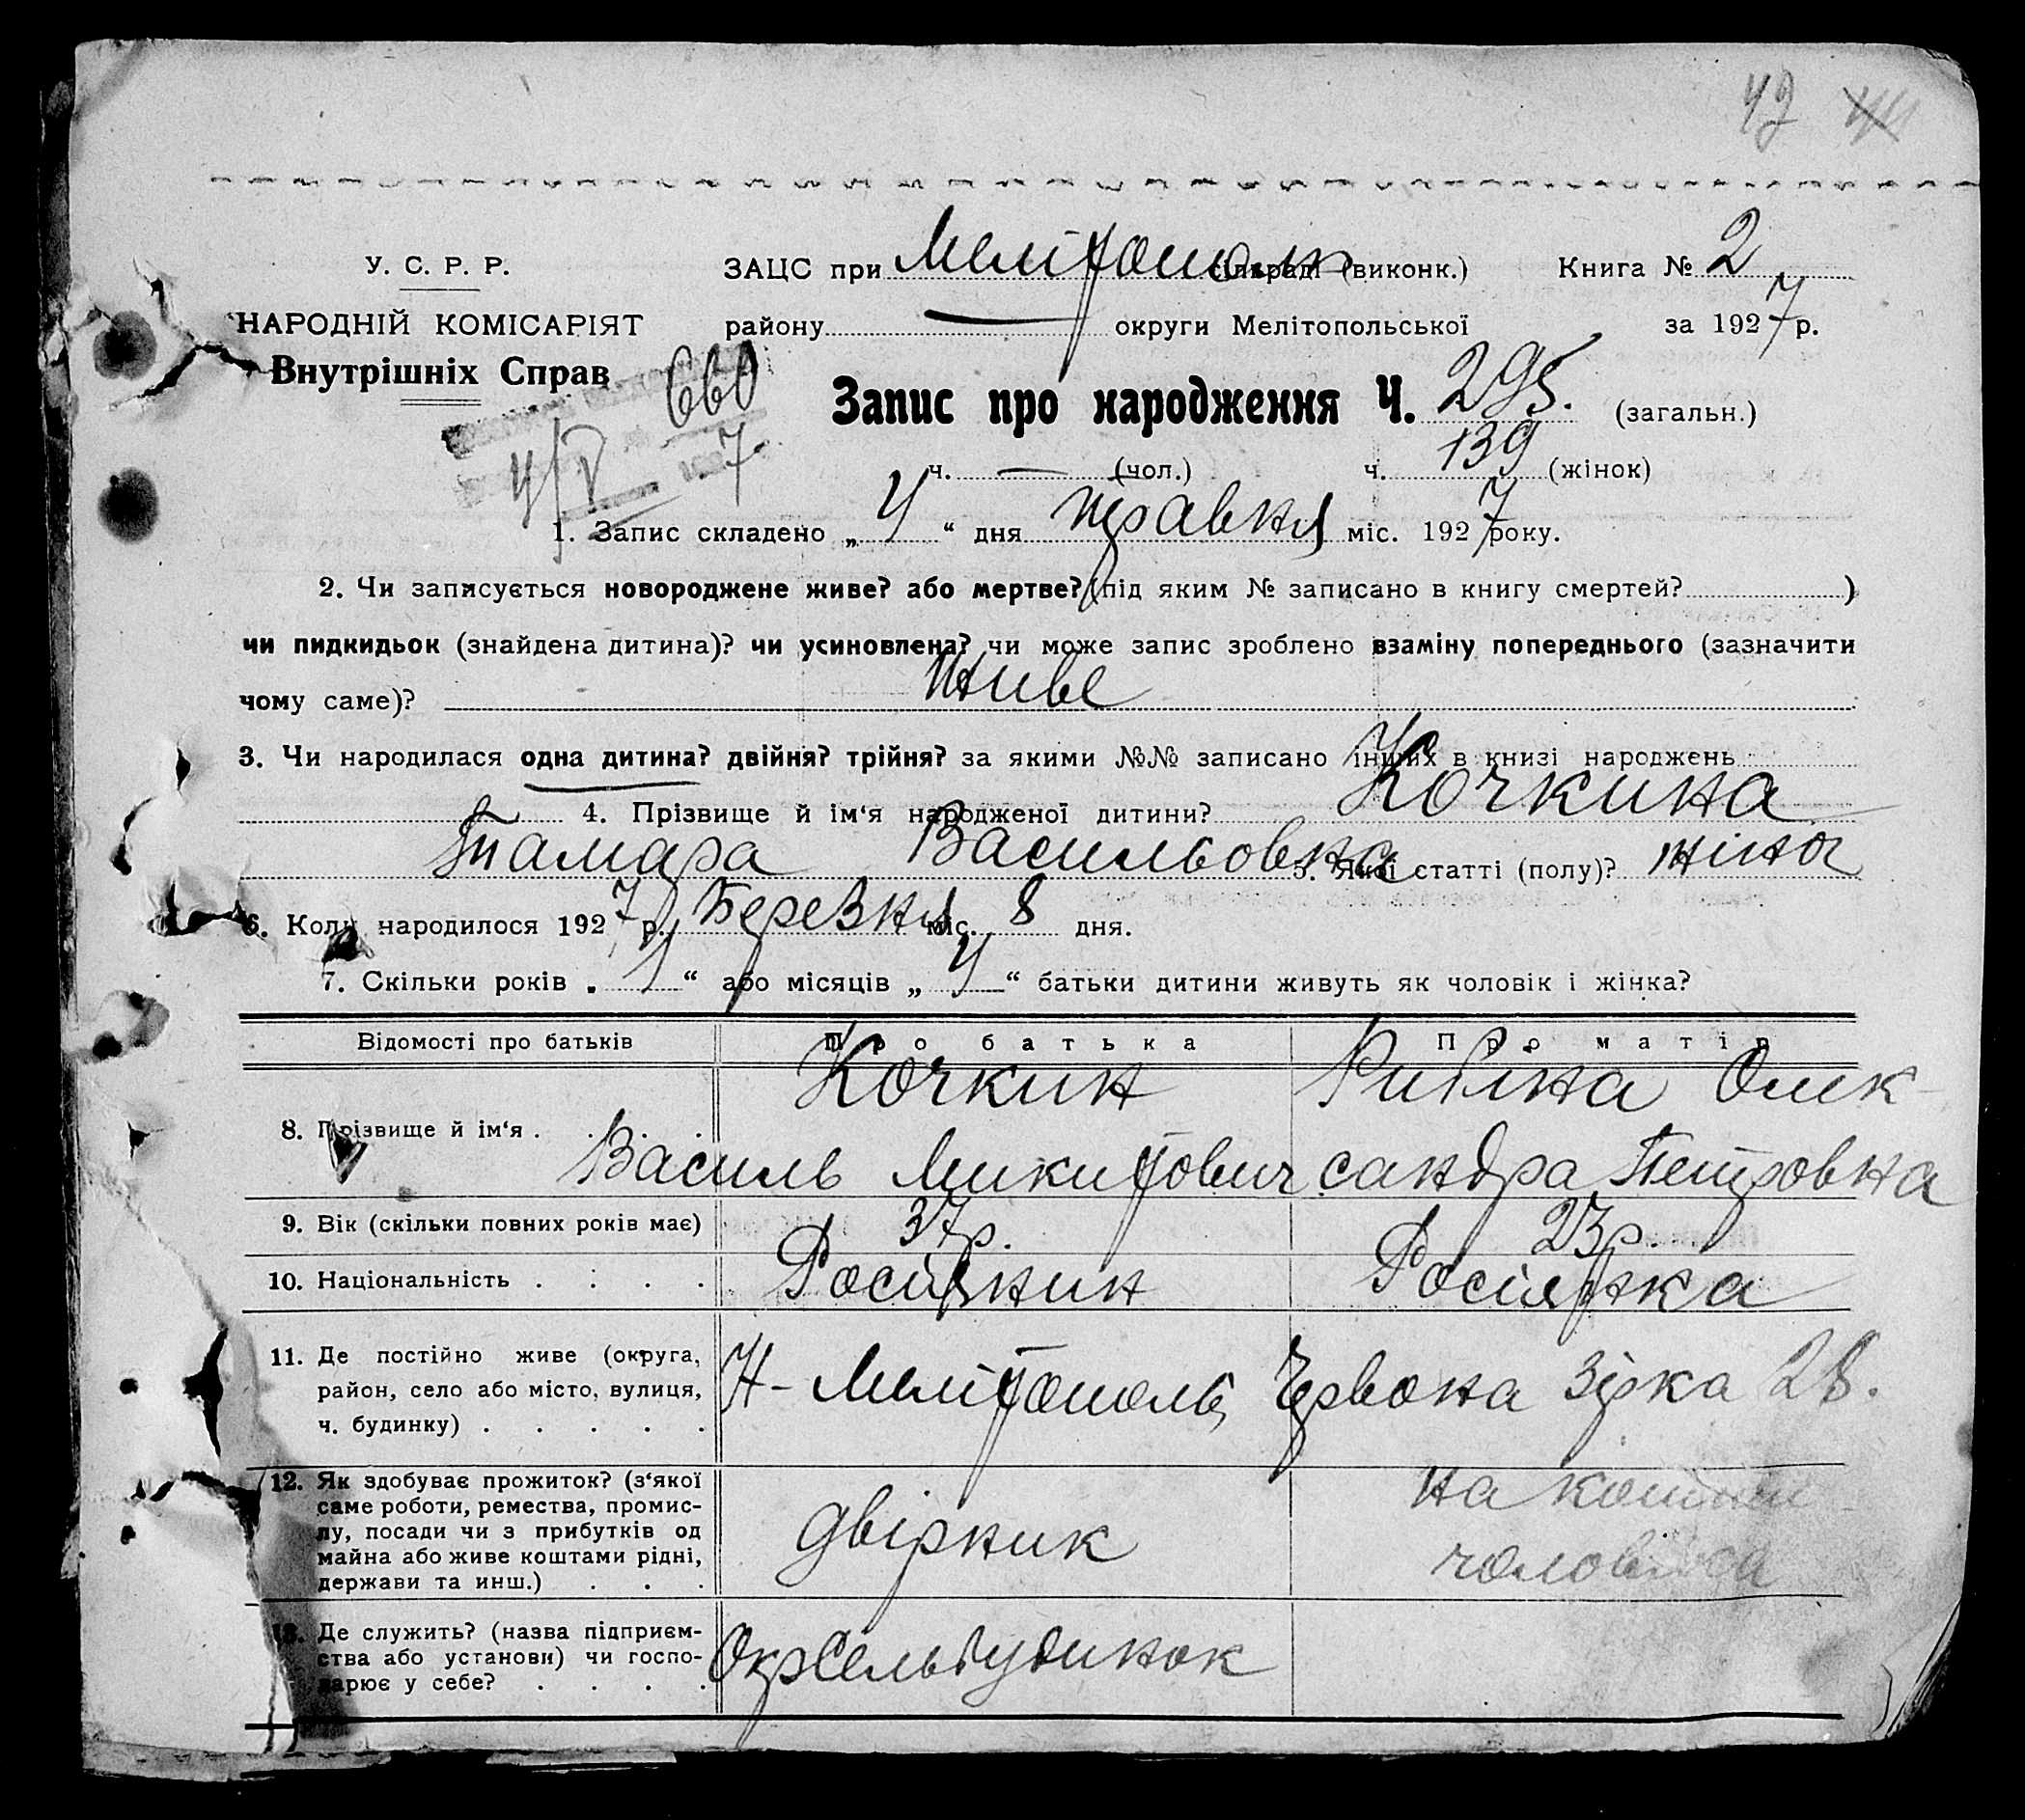 42
У. С. Р. Р. ЗАЦС при Мелітополь сільраді (виконк.) Книга № 2
НАРОДНІЙ КОМІСАРІЯТ району — округи Мелітопольської за 1927 р.
Внутрішніх Справ
660
Запис про народження Ч. 295. (загальн.)
4/V 1927.
ч. — (чол.) ч. 139 (жінок)
1. Запис складено „4“ дня травня міс. 1927 року.
2. Чи записується новороджене живе? або мертве? (під яким № записано в книгу смертей? )
чи пидкидьок (знайдена дитина)? чи усиновлена? чи може запис зроблено взаміну попереднього (зазначити
чому саме)? живе
3. Чи народилася одна дитина? двійня? трійня? за якими №№ записано інших в книзі народжень
4. Прізвище й ім‘я народженої дитини? Кочкина
Тамара Васильовна 5. Якої статті (полу)? жіноч
6. Коли народилося 1927 р. Березня міс. 8 дня.
7. Скільки років „1“ або місяців „4“ батьки дитини живуть як чоловік і жінка?
Відомості про батьків Про батька Про матір
8. Прізвище й ім‘я . . . . Кочкин Рибіна Олек-
Василь Микитович сандра Петровна
9. Вік (скільки повних років має) 37р. 23р.
10. Національність . . . . Росіянин Росіянка
11. Де постійно живе (округа,
район, село або місто, вулиця, Н-Мелітополь, Червона Зірка 28.
ч. будинку) . . . . .
12. Як здобуває прожиток? (з‘якої на кошти
саме роботи, ремества, промис-
лу, посади чи з прибутків од двірник
майна або живе коштами рідні, чоловіка
держави та инш.) . . .
13. Де служить? (назва підприєм-
ства або установи) чи госпо- ОкрСельбудинок
дарює у себе? . . . .